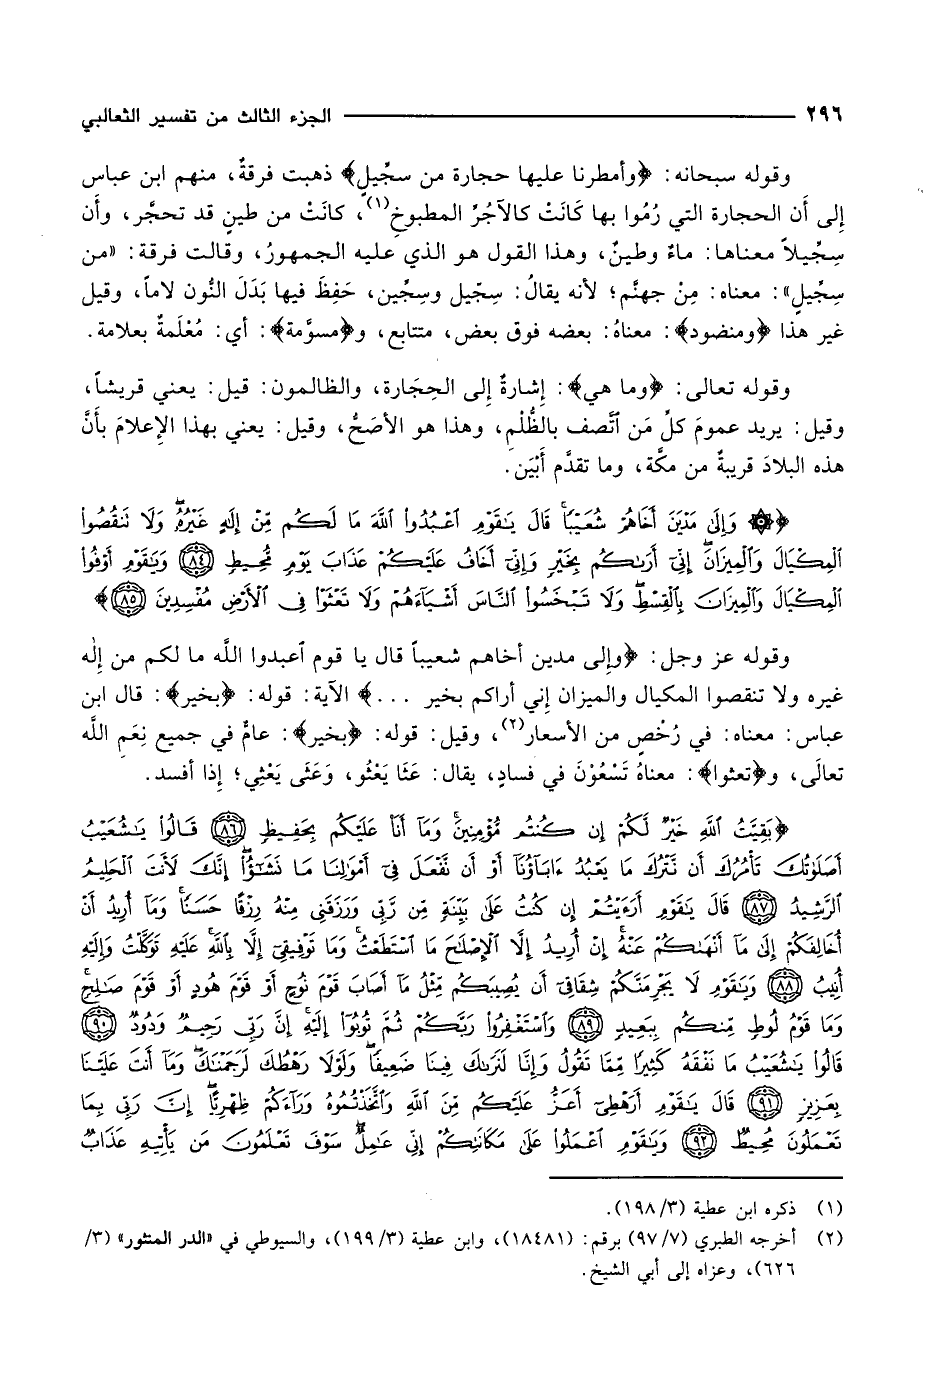 ٢٩٦ ــــــــــ الجزء الثالث من تفسير الثعالبي
وقوله سبحانه: ﴿وأمطرنا عليها حجارة من سجِّيلٍ﴾ ذهبت فرقةٌ، منهم ابن عباس
إلى أن الحجارة التي رُمُوا بها كَانَتْ كالآجُرِّ المطبوخِ(١)، كانَتْ من طينٍ قد تحجَّر، وأن
سِجِّيلاً معناها: ماءٌ وطينٌ، وهذا القول هو الذي عليه الجمهورُ، وقالت فرقة: «من
سِجِّيلٍ»: معناه: مِنْ جهنَّم؛ لأنه يقالُ: سِجِّيل وسِجِّين، حَفِظَ فيها بَدَلَ النُّون لاماً، وقيل
غير هذا ﴿ومنضود﴾: معناهُ: بعضه فوق بعض، متتابع، و﴿مسوَّمة﴾: أي: مُعْلَمةٌ بعلامة.
وقوله تعالى: ﴿وما هي﴾: إشارةٌ إلى الحِجَارة، والظالمون: قيل: يعني قريشاً،
وقيل: يريد عمومَ كلِّ مَن ٱتَّصف بالظُّلْمِ، وهذا هو الأصَحُّ، وقيل: يعني بهذا الإعلامَ بأنَّ
هذه البلادَ قريبةٌ من مكَّة، وما تقدَّم أَبْيَن.
﴿۞ وَإِلَىٰ مَدْيَنَ أَخَاهُمْ شُعَيْبًا ۚ قَالَ يَٰقَوْمِ ٱعْبُدُوا۟ ٱللَّهَ مَا لَكُم مِّنْ إِلَٰهٍ غَيْرُهُۥ ۖ وَلَا تَنقُصُوا۟
ٱلْمِكْيَالَ وَٱلْمِيزَانَ ۚ إِنِّىٓ أَرَىٰكُم بِخَيْرٍ وَإِنِّىٓ أَخَافُ عَلَيْكُمْ عَذَابَ يَوْمٍ مُّحِيطٍ ﴿٨٤﴾ وَيَٰقَوْمِ أَوْفُوا۟
ٱلْمِكْيَالَ وَٱلْمِيزَانَ بِٱلْقِسْطِ ۖ وَلَا تَبْخَسُوا۟ ٱلنَّاسَ أَشْيَآءَهُمْ وَلَا تَعْثَوْا۟ فِى ٱلْأَرْضِ مُفْسِدِينَ ﴿٨٥﴾﴾
وقوله عز وجل: ﴿وإلى مدين أخاهم شعيباً قال يا قوم ٱعبدوا اللَّه ما لكم من إلٰه
غيره ولا تنقصوا المكيال والميزان إني أراكم بخير ...﴾ الآية: قوله: ﴿بخير﴾: قال ابن
عباس: معناه: في رُخْصٍ من الأسعار(٢)، وقيل: قوله: ﴿بخير﴾: عامٌّ في جميع نِعَمِ اللَّه
تعالَى، و﴿تعثوا﴾: معناهُ تَسْعَوْنَ في فسادٍ، يقال: عَثَا يَعْثُو، وَعَثَى يَعْثِي؛ إذا أفسد.
﴿بَقِيَّتُ ٱللَّهِ خَيْرٌ لَّكُمْ إِن كُنتُم مُّؤْمِنِينَ ۚ وَمَآ أَنَا۠ عَلَيْكُم بِحَفِيظٍ ﴿٨٦﴾ قَالُوا۟ يَٰشُعَيْبُ
أَصَلَوٰتُكَ تَأْمُرُكَ أَن نَّتْرُكَ مَا يَعْبُدُ ءَابَآؤُنَآ أَوْ أَن نَّفْعَلَ فِىٓ أَمْوَٰلِنَا مَا نَشَٰٓؤُا۟ ۖ إِنَّكَ لَأَنتَ ٱلْحَلِيمُ
ٱلرَّشِيدُ ﴿٨٧﴾ قَالَ يَٰقَوْمِ أَرَءَيْتُمْ إِن كُنتُ عَلَىٰ بَيِّنَةٍ مِّن رَّبِّى وَرَزَقَنِى مِنْهُ رِزْقًا حَسَنًا ۚ وَمَآ أُرِيدُ أَنْ
أُخَالِفَكُمْ إِلَىٰ مَآ أَنْهَىٰكُمْ عَنْهُ ۚ إِنْ أُرِيدُ إِلَّا ٱلْإِصْلَٰحَ مَا ٱسْتَطَعْتُ ۚ وَمَا تَوْفِيقِىٓ إِلَّا بِٱللَّهِ ۚ عَلَيْهِ تَوَكَّلْتُ وَإِلَيْهِ
أُنِيبُ ﴿٨٨﴾ وَيَٰقَوْمِ لَا يَجْرِمَنَّكُمْ شِقَاقِىٓ أَن يُصِيبَكُم مِّثْلُ مَآ أَصَابَ قَوْمَ نُوحٍ أَوْ قَوْمَ هُودٍ أَوْ قَوْمَ صَٰلِحٍ ۚ
وَمَا قَوْمُ لُوطٍ مِّنكُم بِبَعِيدٍ ﴿٨٩﴾ وَٱسْتَغْفِرُوا۟ رَبَّكُمْ ثُمَّ تُوبُوٓا۟ إِلَيْهِ ۚ إِنَّ رَبِّى رَحِيمٌ وَدُودٌ ﴿٩٠﴾
قَالُوا۟ يَٰشُعَيْبُ مَا نَفْقَهُ كَثِيرًا مِّمَّا تَقُولُ وَإِنَّا لَنَرَىٰكَ فِينَا ضَعِيفًا ۖ وَلَوْلَا رَهْطُكَ لَرَجَمْنَٰكَ ۖ وَمَآ أَنتَ عَلَيْنَا
بِعَزِيزٍ ﴿٩١﴾ قَالَ يَٰقَوْمِ أَرَهْطِىٓ أَعَزُّ عَلَيْكُم مِّنَ ٱللَّهِ وَٱتَّخَذْتُمُوهُ وَرَآءَكُمْ ظِهْرِيًّا ۖ إِنَّ رَبِّى بِمَا
تَعْمَلُونَ مُحِيطٌ ﴿٩٢﴾ وَيَٰقَوْمِ ٱعْمَلُوا۟ عَلَىٰ مَكَانَتِكُمْ إِنِّى عَٰمِلٌ ۖ سَوْفَ تَعْلَمُونَ مَن يَأْتِيهِ عَذَابٌ
(١) ذكره ابن عطية (٣/ ١٩٨).
(٢) أخرجه الطبري (٧/ ٩٧) برقم: (١٨٤٨١)، وابن عطية (٣/ ١٩٩)، والسيوطي في «الدر المنثور» (٣/
٦٢٦)، وعزاه إلى أبي الشيخ.